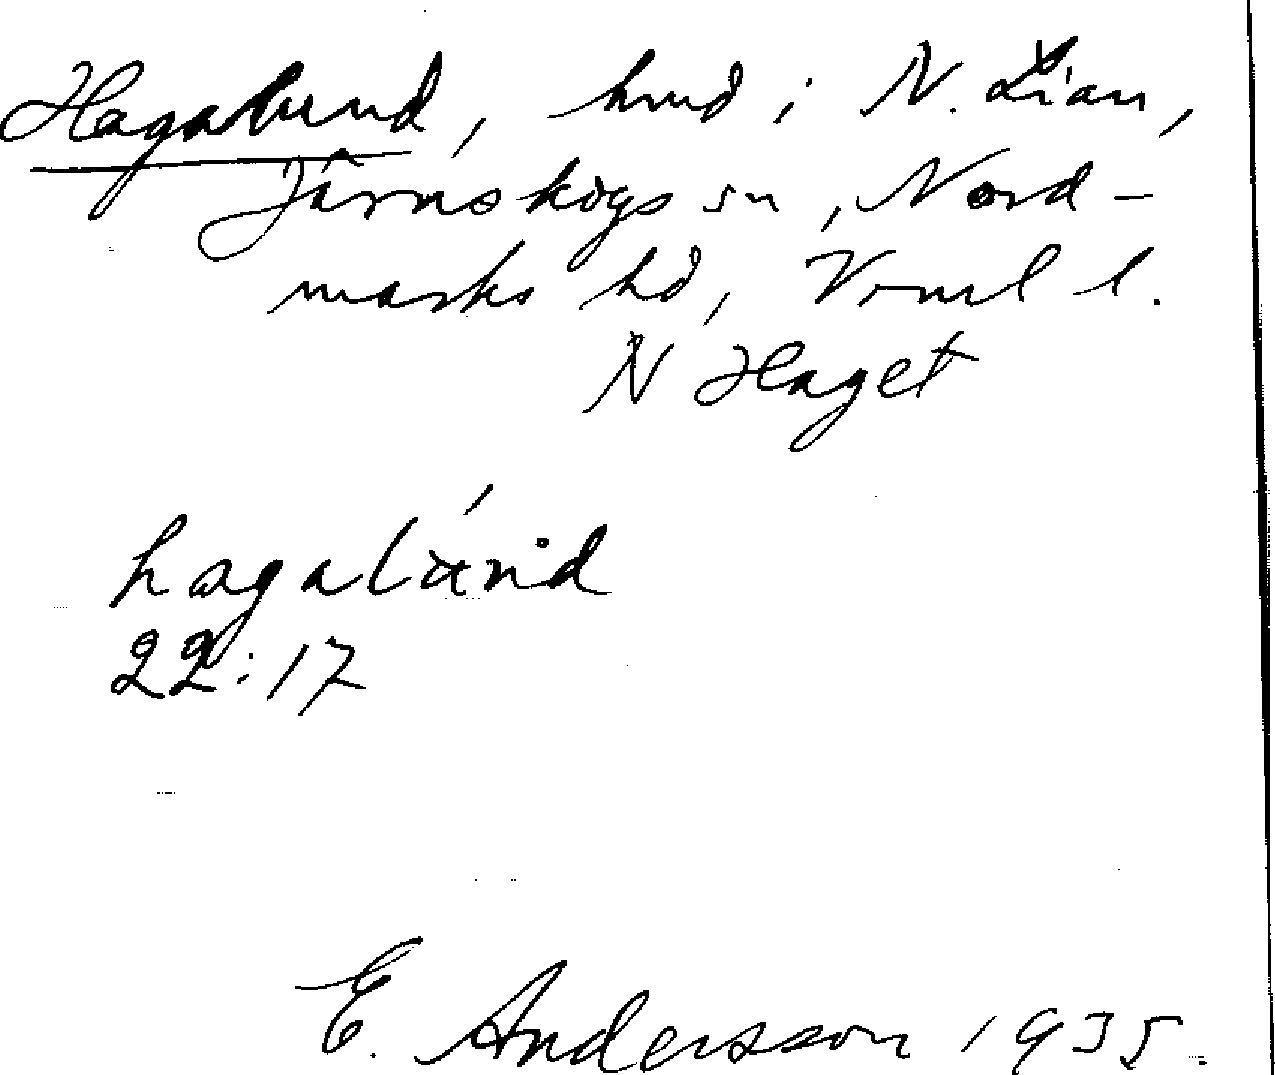 Hagalund, hmd i N. Lian,
Järnskogs sn, Nord-
marks hd, Vrml l.
N Haget
hagalund
22:17
E. Andersson 1935.